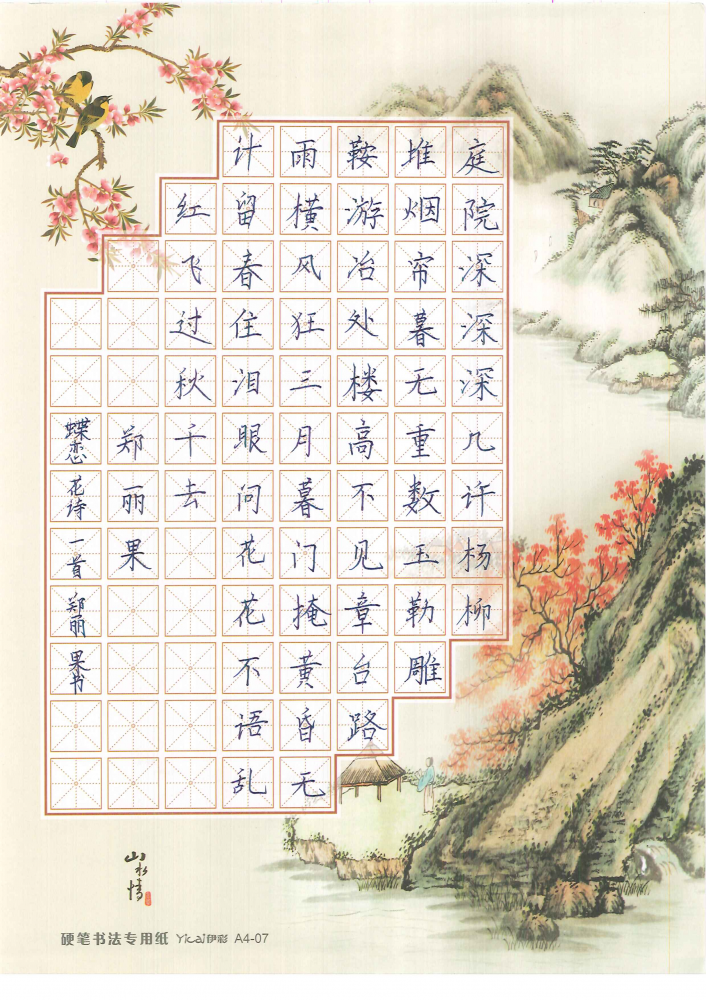 庭院深深深几许杨柳
堆烟帘暮无重数玉勒雕
鞍游冶处楼高不见章台路
雨横风狂三月暮门掩黄昏无
计留春住泪眼问花花不语乱
红飞过秋千去
郑丽果
蝶恋花诗一首郑丽果书
山水情
硬笔书法专用纸 Yicai伊彩 A4-07